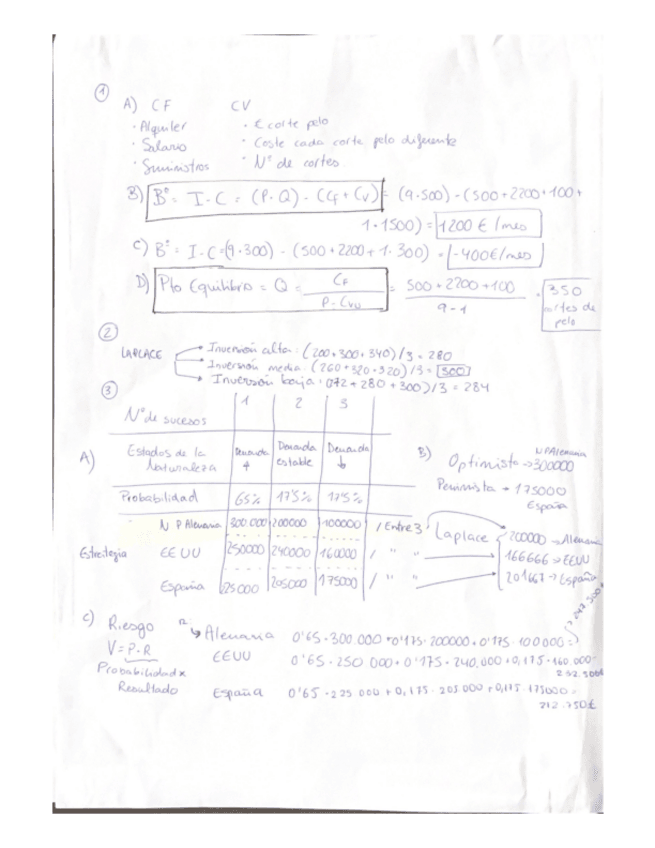 ①
A) CF CV
· Alquiler · € corte pelo
· Salario · Coste cada corte pelo diferente
· Suministros · Nº de cortes
B) Bº = I - C = (P·Q) - (CF + CV) = (9·500) - (500+2200+100+
1·1500) = 1200 € /mes
C) Bº = I - C = (9·300) - (500+2200+1·300) = -400€/mes
D) Pto Equilibrio = Q = CF / P - CVu = 500 + 2200 + 100 / 9 - 1 = 350 cortes de pelo
②
LAPLACE → Inversión alta: (200+300+340)/3 = 280
→ Inversión media: (260+320+320)/3 = 300
→ Inversión baja: + 280 + 300)/3 = 284
③
Nº de sucesos 1 2 3
A) Estados de la Naturaleza Demanda Demanda estable Demanda ↓
Probabilidad 65% 17'5% 17'5%
N P Alemania 300.000 200000 100000 / Entre 3
Estrategia EEUU 250000 240000 160000 / " "
España 225000 205000 175000 / " "
B) Optimista → 300000 N P Alemania
Pesimista → 175000
España
Laplace 200000 → Alemania
166666 → EEUU
201667 → España
C) Riesgo
V = P·R
Probabilidad x
Resultado
Alemania 0'65·300.000 + 0'175·200000 + 0'175·100000 =
EEUU 0'65·250 000 + 0'175·240,000 + 0,175·160.000
España 0'65·225 000 + 0,175·205 000 + 0,175·175000 =
212.750€